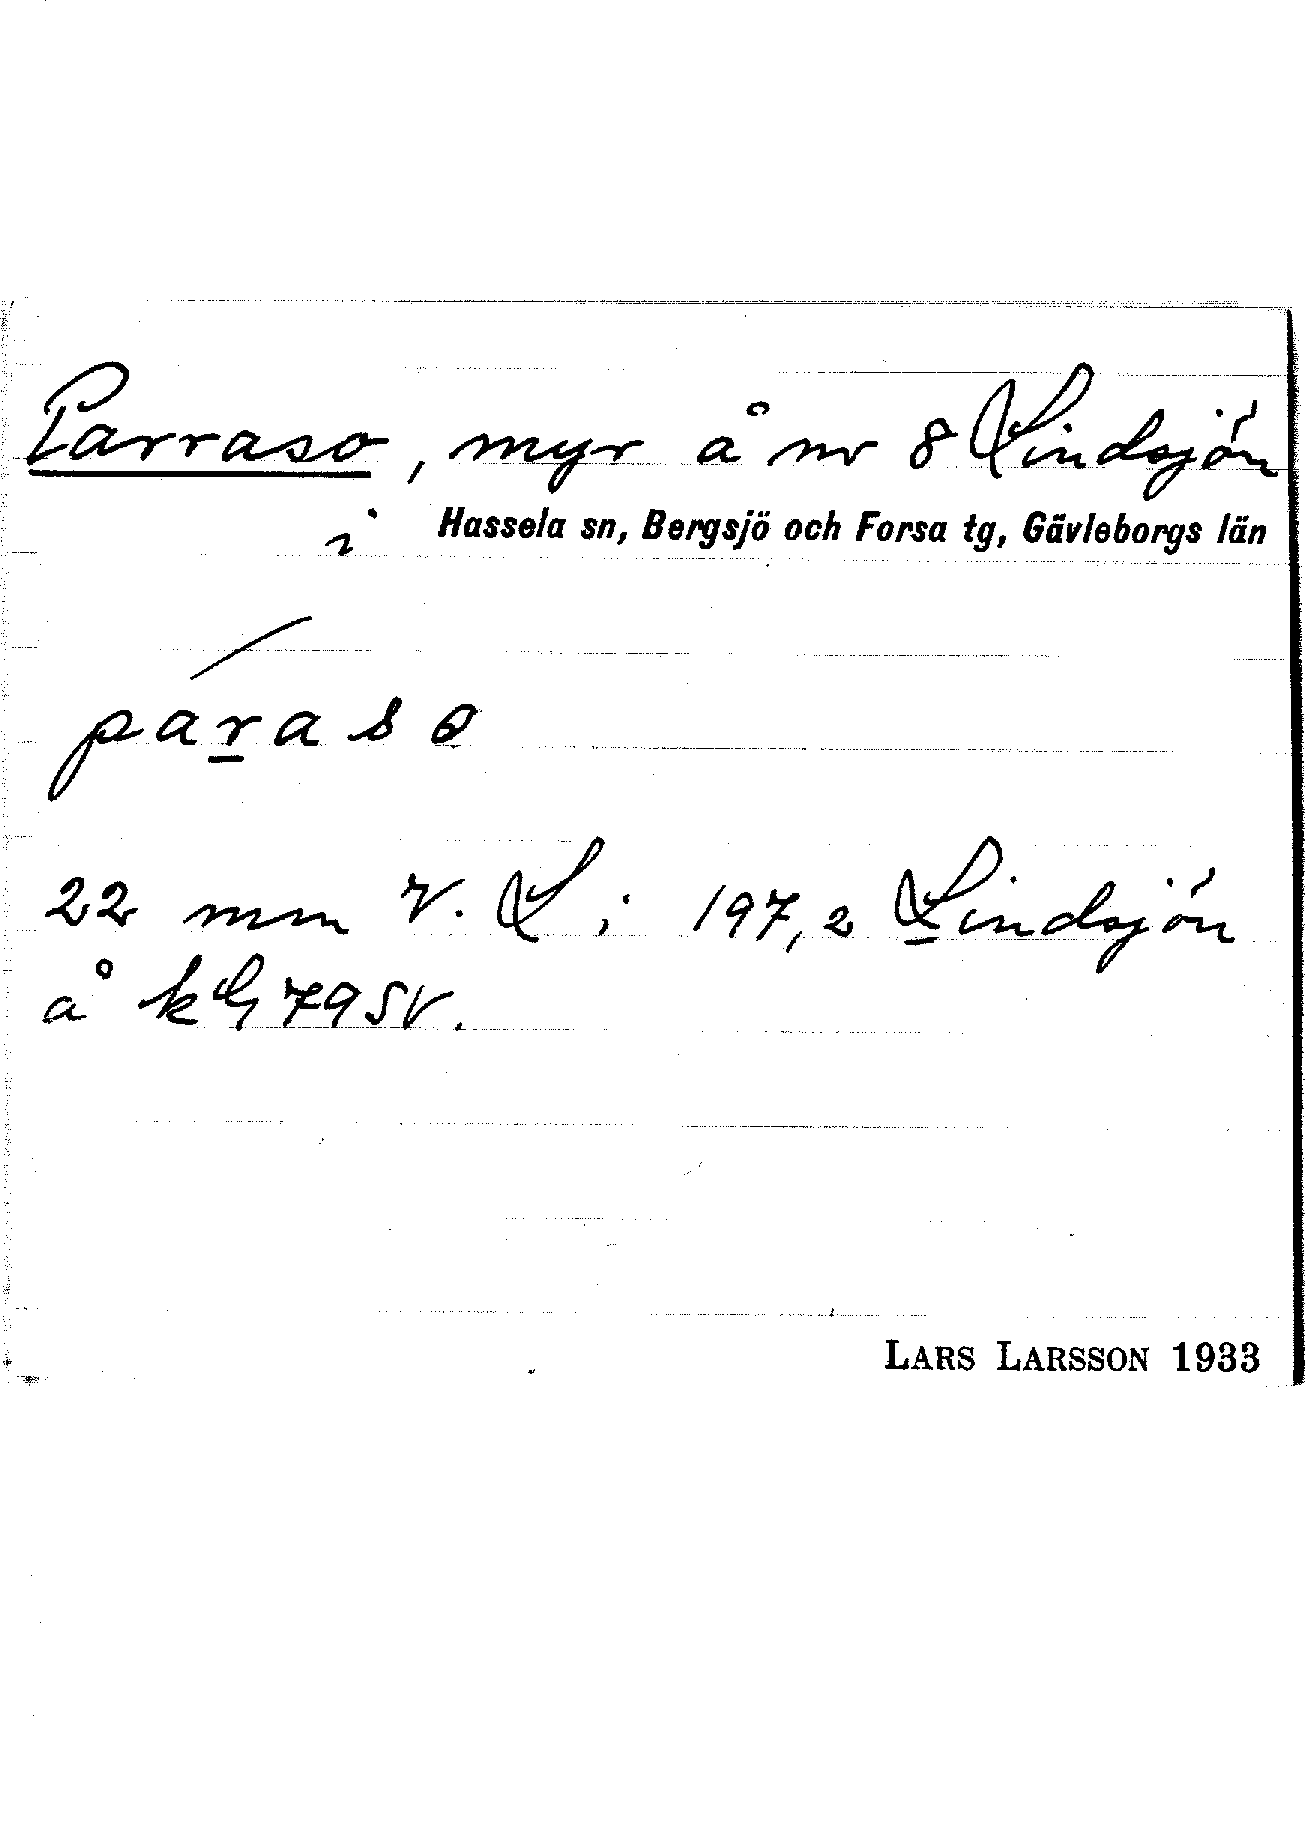 Parraso, myr å nr 8 Lindsjön
i Hassela sn, Bergsjö och Forsa tg, Gävleborgs län
paraso
22 mm V. L i 197,2 Lindsjön
å kG 79 SV.
LARS LARSSON 1933